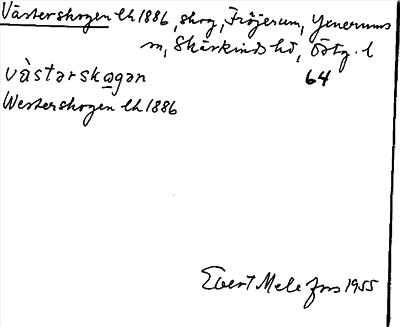 Västerskogen lk 1886, skog, Fröjerum, Yxnerums
sn, Skärkinds hd, Östg. l
64
västərskogən
Westerskogen lk 1886
Evert Melefors 1955